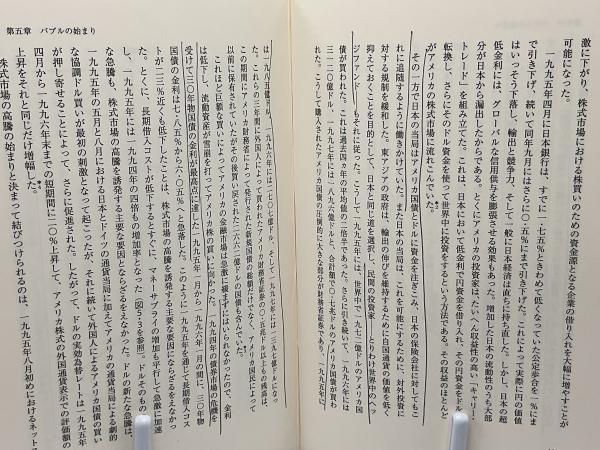 激に下がり、株式市場における株買いのための資金源となる企業の借り入れを大幅に増やすことが
可能になった。
一九九五年四月に日本銀行は、すでに一・七五％ときわめて低くなっていた公定歩合を一％にま
で引き下げ、続いて同年九月にはさらに〇・五％にまで引き下げた。これによって実際に円の価値
はいっそう下落し、輸出と競争力、そして一般に日本経済は直ちに持ち直した。しかし、日本の超
低金利には、グローバルな信用膨張を拡張させる効果もあった。増加した日本の流動性のうち大部
分が日本から漏出したからである。とくにアメリカの投資家は、たいへん収益性の高い「キャリー・
トレード」を組み立てた。これは、日本において低金利で円資金を借り入れ、その円資金をドルに
転換し、さらにそのドル資金を使って世界中に投資をするという方法である。その収益のほとんど
がアメリカの株式市場に流れこんでいた。
その一方で日本の当局はアメリカ国債とドルに資金を注ぎこみ、日本の保険会社に対してもこ
れに追随するように働きかけていた。また日本の当局は、これを可能にするために、対外投資に
対する規制を緩和した。東アジアの政府は、輸出の伸びを維持するために自国通貨の価値を低く
抑えておくことを目的として、日本と同じ道を選択し、民間の投資家――とりわけ世界中のヘッ
ジファンド――もそれに従った。こうして一九九五年には、世界中で一九七二億ドルのアメリカ国
債が買われた。これは過去四カ年の平均値の二倍半であった。さらに引き続いて、一九九六年には
三一二〇億ドル、一九九七年には一八九六億ドルと、合計額で〇・七兆ドルのアメリカ国債が買わ
れた。こうして購入されたアメリカ国債の圧倒的に大きな部分が財務省証券であり、一九九五年に、
第五章 バブルの始まり
は一八五億ドル、一九九六年には二七〇七億ドル、そして一九九七年には一三九七億ドルになっ
た。これらの三年間に外国人によって買われたアメリカ財務省証券の〇・五兆ドル以上もの残高は、
この期間にアメリカ財務省によって発行された新規国債の総額だけでなく、アメリカ国民によって
以前に保有されていたがその後買い戻された二六六二億ドルの国債も含んでいた。
これほど巨額な買いによってアメリカの金融市場は急激に緩まずにはいられなかったので、金利
は低下し、流動資産が雪崩を打ってアメリカ株の買いに向かった。一九九四年の債券市場の危機を
受けて三〇年物国債の金利が最高点に達した一九九五年一月から一九九六年一月の間に、三〇年物
国債の金利は七・八五％から六・〇五％へと急落した。このように一九九五年を通じて長期借入コス
トが二三％近くも低下したことは、株式市場の高騰を誘発する主要な要因にならざるをえなかっ
た。とくに、長期借入コストが低下するとすぐに、マネーサプライの増加も平行して急激に加速
し、一九九五年には一九九四年の四倍もの増加率となった（図5・3を参照）。ドルそのものの
な急騰も、株式市場の高騰を誘発する主要な要因とならざるをえなかった。ドルの新たな急騰は、
一九九五年の五月と八月における日本とドイツの通貨当局に加えてアメリカの通貨当局による劇的
な協調ドル買いが最初の刺激となって起こったが、それに続いて外国人によるアメリカ国債の買い
が押し寄せることによって、さらに促進された。したがって、ドルの実効為替レートは一九九五年
四月から一九九六年末までの短期間に二〇％上昇して、アメリカ株式の外国通貨表示での評価額の
上昇をそれと同じだけ増幅した。
株式市場の高騰の始まりと決まって結びつけられるのは、一九九五年八月初めにおけるネットス